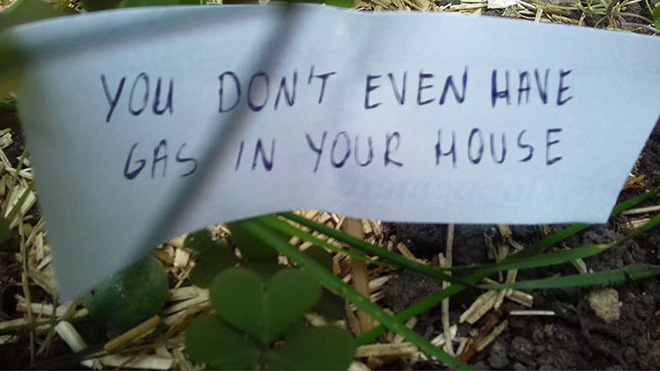 YOU DON'T EVEN HAVE
GAS IN YOUR HOUSE